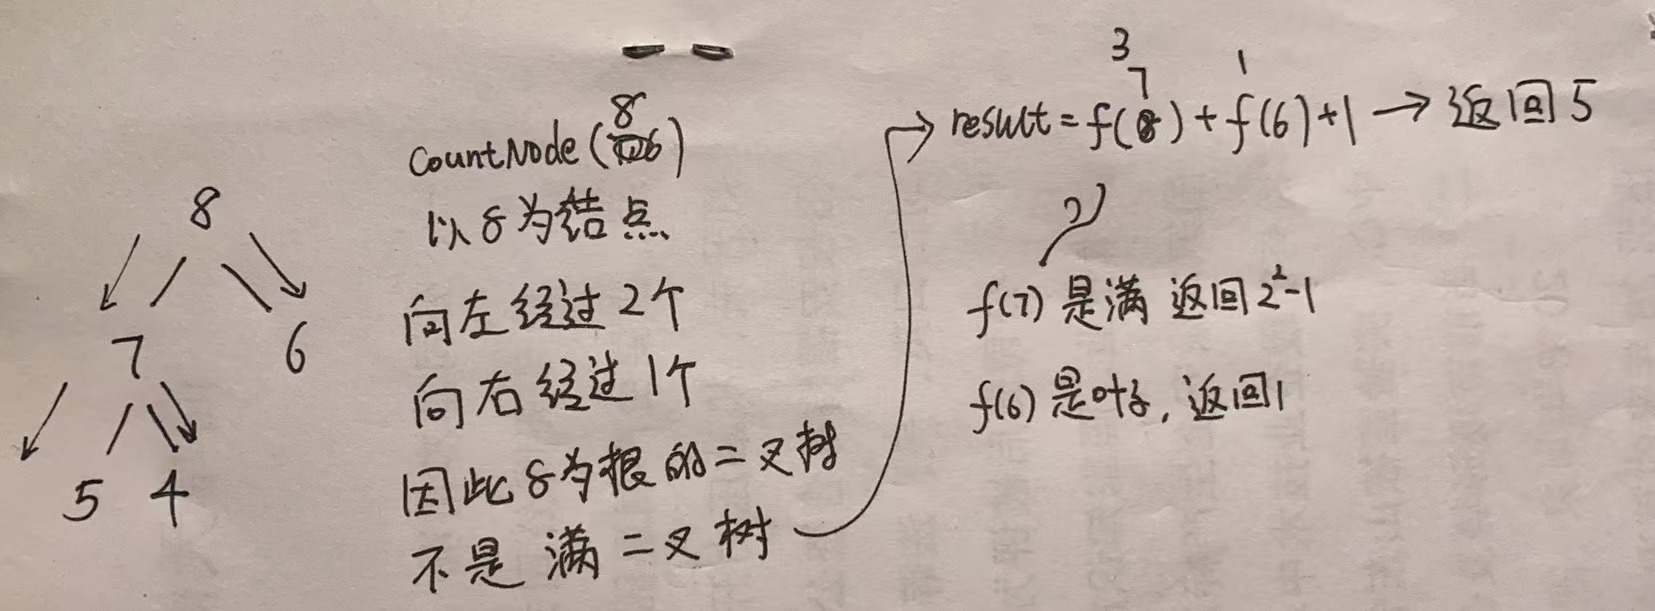 8
7 6
5 4
CountNode(8)
以8为结点
向左经过2个
向右经过1个
因此8为根的二叉树
不是满二叉树
3 1
7
result=f( )+f(6)+1→返回5
f(7)是满 返回2²-1
f(6)是叶子,返回1